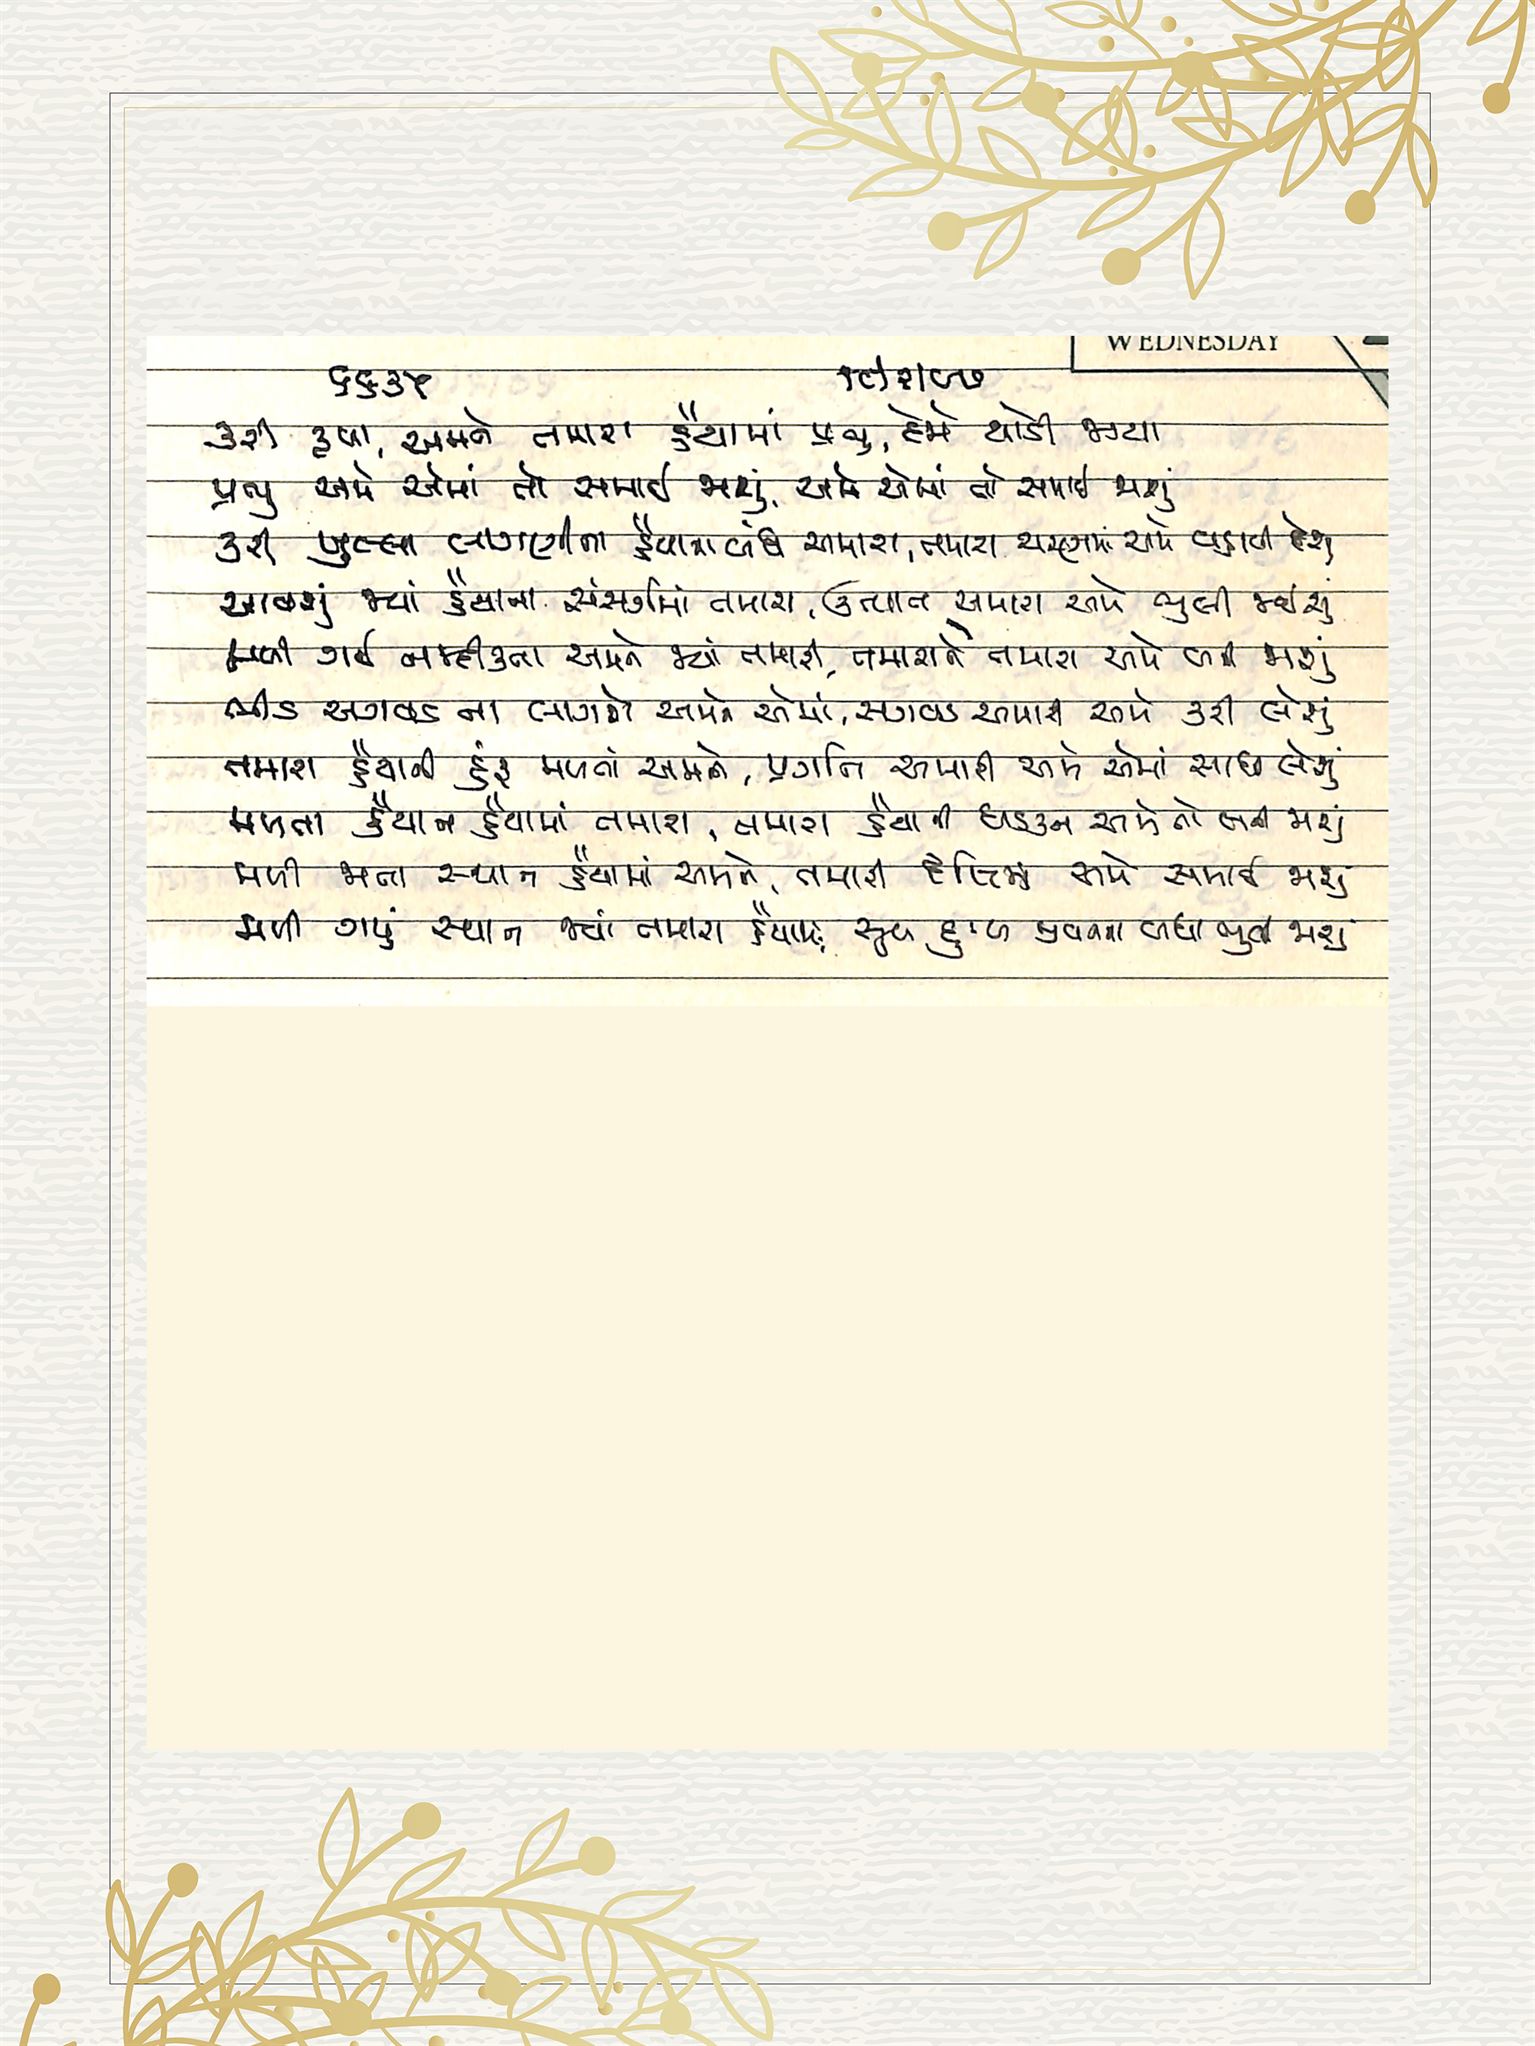 WEDNESDAY
૬૬૩૫
કરી કૃપા, અમને તમારા હૈયામાં પ્રભુ, દેજો થોડી જગ્યા
પ્રભુ અમે એમાં તો સમાઈ જાશું, અમે એમાં તો સમાઈ જાશું
કરી ખુલ્લા લાગણીના હૈયાના બંધ અમારા, તમારા ચરણમાં અમે વહાવી દેશું
આવશું જ્યાં હૈયાના સંસર્ગમાં તમારા, ઉત્પાત અમારા અમે ભૂલી જઈશું
મળી ગઈ નજદીકતા અમને જ્યાં તમારી, તમારાને તમારા અમે બની જાશું
ભીડ અગવડ ના લાગશે અમને એમાં, સગવડ અમારી અમે કરી લેશું
તમારા હૈયાની હૂંફ મળતાં અમને, પ્રગતિ અમારી અમે એમાં સાધી લેશું
મળતા હૈયાને હૈયામાં તમારા, તમારા હૈયાની ધડકન અમે તો બની જાશું
મળી જાતા સ્થાન હૈયામાં અમને, તમારી અમે સમાઈ જાશું
મળી ગયું સ્થાન જ્યાં તમારા હૈયામાં, સુખ દુઃખ જીવનના બધા ભૂલી જાશું